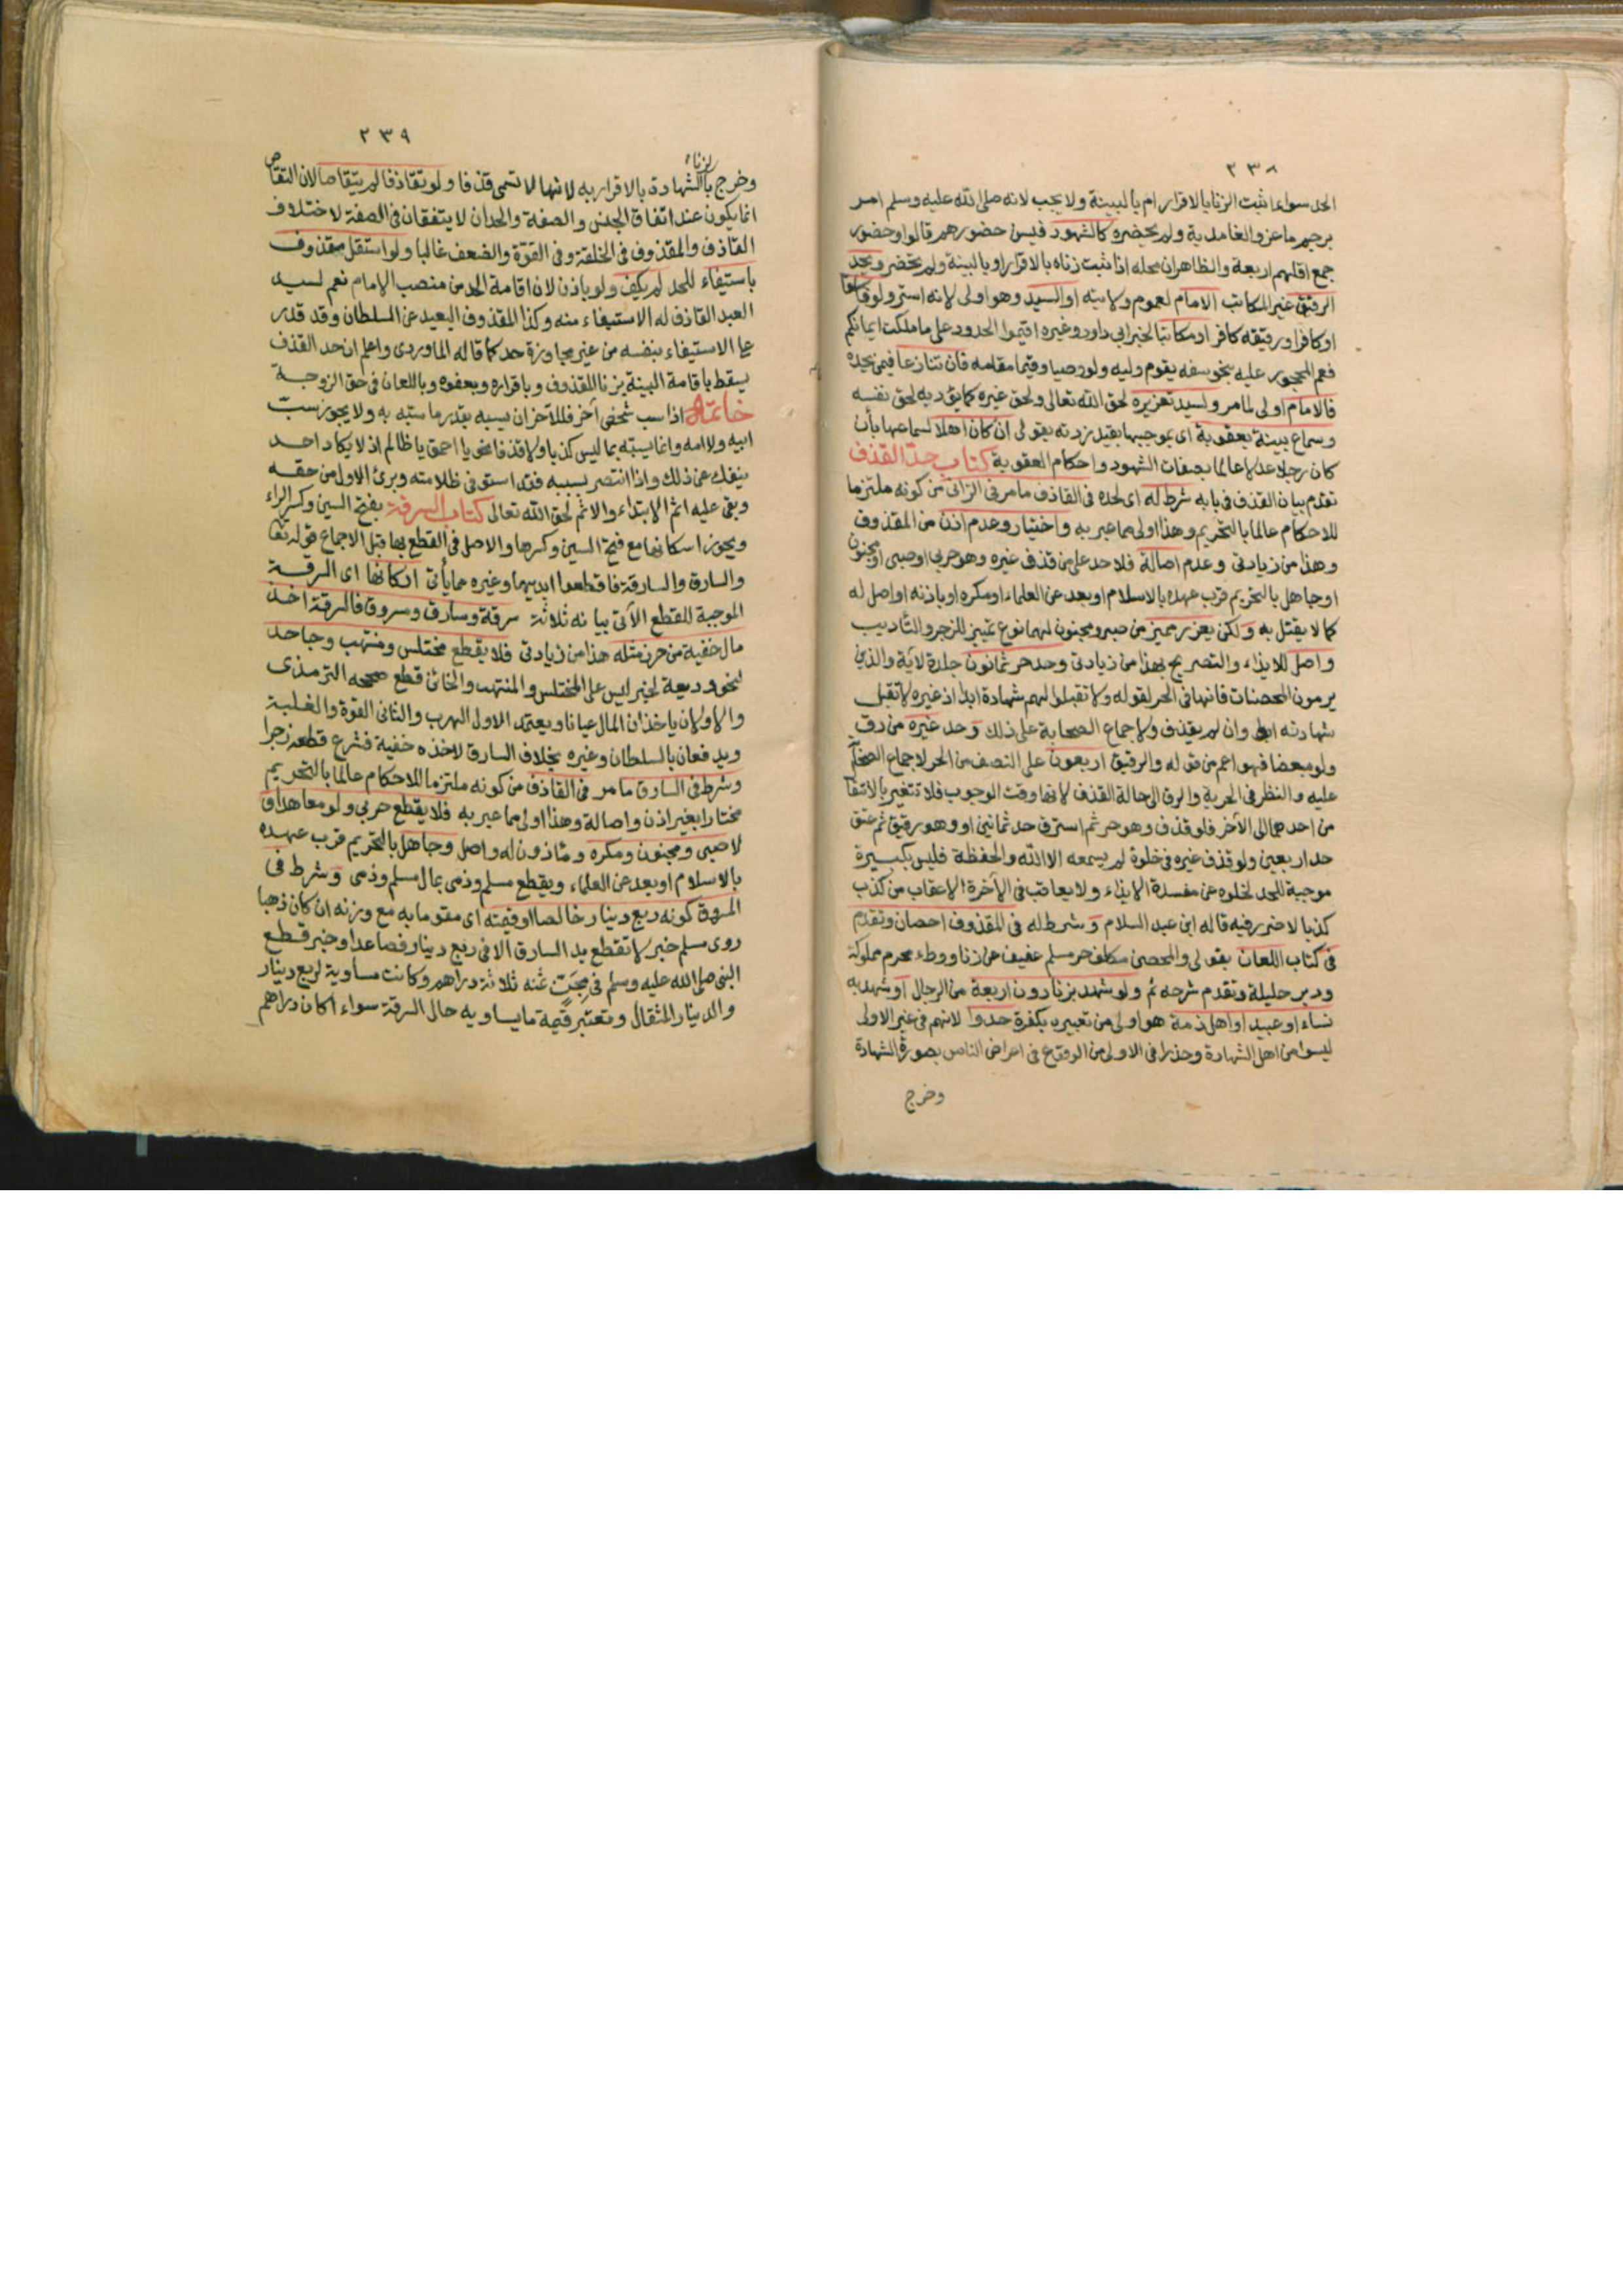 ٢٣٨
الحد سواء اثبت الزنا بالاقرار ام بالبينة ولا يجب لانه صلى الله عليه وسلم امر
برجم ماعز والغامدية ولم يحضره كالشهود فيسن حضورهم قالوا وحضور
جمع اقلهم اربعة والظاهران محله اذا ثبت زناه بالاقرار او بالبينة ولم تحضر ويحد
الرقيق غير المكاتب الامام لعموم ولايته او السيد وهو اولى لانه استر ولو فاسقا
او كافرا ورقيقه كافر او مكاتبا لخبر ابي داود وغيره اقيموا الحدود على ما ملكت ايمانكم
نعم المحجور عليه بنحو سفه يقوم وليه ولو وصيا وقيما مقامه فان تنازعا فيمن يحده
فالامام اولى لما مر ولسيد تعزيره لحق الله تعالى ولحق غيره كما يؤدبه لحق نفسه
وسماع بينة بعقوبة اى بموجبها بقيد زدته بقولى ان كان اهلا لسماعها بأن
كان رجلا عدلا عالما بصفات الشهود واحكام العقوبة كتاب حد القذف
تقدم بيان القذف فى بابه شرط له اى لحده فى القاذف ما مر فى الزانى من كونه ملتزما
للاحكام عالما بالتحريم وهذا اولى مما عبر به واختيار وعدم اذن من المقذوف
وهذا من زيادتى وعدم اصالة فلا حد على من قذف غيره وهو حربى او صبى او مجنون
او جاهل بالتحريم قرب عهده بالاسلام او بعد عن العلماء او مكره او باذنه او اصل له
كما لا يقتل به ولكن يعزر مميز من صبى ومجنون لهما نوع تمييز للزجر والتأديب
واصل للايذاء والتصريح بهذا من زيادتى وحد حر ثمانون جلدة لآية والذين
يرمون المحصنات فانها فى الحر لقوله ولا تقبلوا لهم شهادة ابدا اذ غيره لا تقبل
شهادته ابدا وان لم يقذف ولاجماع الصحابة على ذلك وحد غيره من رق
ولو مبعضا فهو اعم من قوله والرقيق اربعون على النصف من الحر لاجماع الصحابة
عليه والنظر فى الحرية والرق الى حالة القذف لانها وقت الوجوب فلا تتغير بالانتقال
من احدهما الى الآخر فلو قذف وهو حر ثم استرق حد ثمانين او وهو رقيق ثم عتق
حد اربعين ولو قذف غيره فى خلوة لم يسمعه الا الله والحفظة فليس بكبيرة
موجبة للحد لخلوه عن مفسدة الايذاء ولا يعاقب فى الآخرة الا عقاب من كذب
كذبا لا ضرر فيه قاله ابن عبد السلام وشرط له فى المقذوف احصان وتقدم
فى كتاب اللعان بقولى والمحصن مكلف حر مسلم عفيف عن زنا ووطء محرم مملوكة
ودبر حليلة وتقدم شرحه ثم ولو شهد بزنا دون اربعة من الرجال او شهد به
نساء او عبيد او اهل ذمة هو اولى من تعبيره بكفرة حدوا لانهم فى غير الاولى
ليسوا من اهل الشهادة وحذرا فى الاولى من الوقوع فى اعراض الناس بصورة الشهادة
وخرج
٢٣٩
بزنا
وخرج بالشهادة بالاقرار به لانها لا تسمى قذفا ولو تقاذفا لم يتقاصا لان التقاص
انما يكون عند اتفاق الجنس والصفة والحدان لا يتفقان فى الصفة لاختلاف
القاذف والمقذوف فى الخلقة وفى القوة والضعف غالبا ولو استقل مقذوف
باستيفاء للحد لم يكف ولو باذن لان اقامة الحد من منصب الامام نعم لسيد
العبد القاذف له الاستيفاء منه وكذا المقذوف البعيد عن السلطان وقد قدر
على الاستيفاء بنفسه من غير مجاوزة حد كما قاله الماوردى واعلم ان حد القذف
يسقط باقامة البينة بزنا المقذوف وباقراره وبعفوه وباللعان فى حق الزوجة
خاتمة اذا سب شخص آخر فللآخر ان يسبه بقدر ما سبه به ولا يجوز سب
ابيه ولا امه وانما يسبه بما ليس كذبا ولا قذفا نحو يا احمق يا ظالم اذ لا يكاد احد
ينفك عن ذلك واذا انتصر بسبه فقد استوفى ظلامته وبرئ الاول من حقه
وبقى عليه اثم الابتداء والاثم لحق الله تعالى كتاب السرقة بفتح السين وكسر الراء
ويجوز اسكانها مع فتح السين وكسرها والاصل فى القطع بها قبل الاجماع قوله تعا
والسارق والسارقة فاقطعوا ايديهما وغيره مما يأتى اركانها اى السرقة
الموجبة للقطع الآتى بيانه ثلاثة سرقة وسارق ومسروق فالسرقة اخذ
مال خفية من حرز مثله هذا من زيادتى فلا يقطع مختلس ومنتهب وجاحد
لنحو وديعة لخبر ليس على المختلس والمنتهب والخائن قطع صححه الترمذى
والاولان ياخذان المال عيانا ويعتمد الاول الهرب والثانى القوة والغلبة
ويدفعان بالسلطان وغيره بخلاف السارق لاخذه خفية فشرع قطعه زجرا
وشرط فى السارق ما مر فى القاذف من كونه ملتزما للاحكام عالما بالتحريم
مختارا بغير اذن واصالة وهذا اولى مما عبر به فلا يقطع حربى ولو معاهدا و
لا صبى ومجنون ومكره وماذون له واصل وجاهل بالتحريم قرب عهده
بالاسلام او بعد عن العلماء ويقطع مسلم وذمى بمال مسلم وذمى وشرط فى
المسروق كونه ربع دينار خالصا او قيمته اى مقوما به مع وزنه ان كان ذهبا
روى مسلم خبر لا تقطع يد السارق الا فى ربع دينار فصاعدا وخبر قطع
النبى صلى الله عليه وسلم فى مجن ثمنه ثلاثة دراهم وكانت مساوية لربع دينار
والدينار المثقال وتعتبر قيمة ما يساويه حال السرقة سواء اكان دراهم